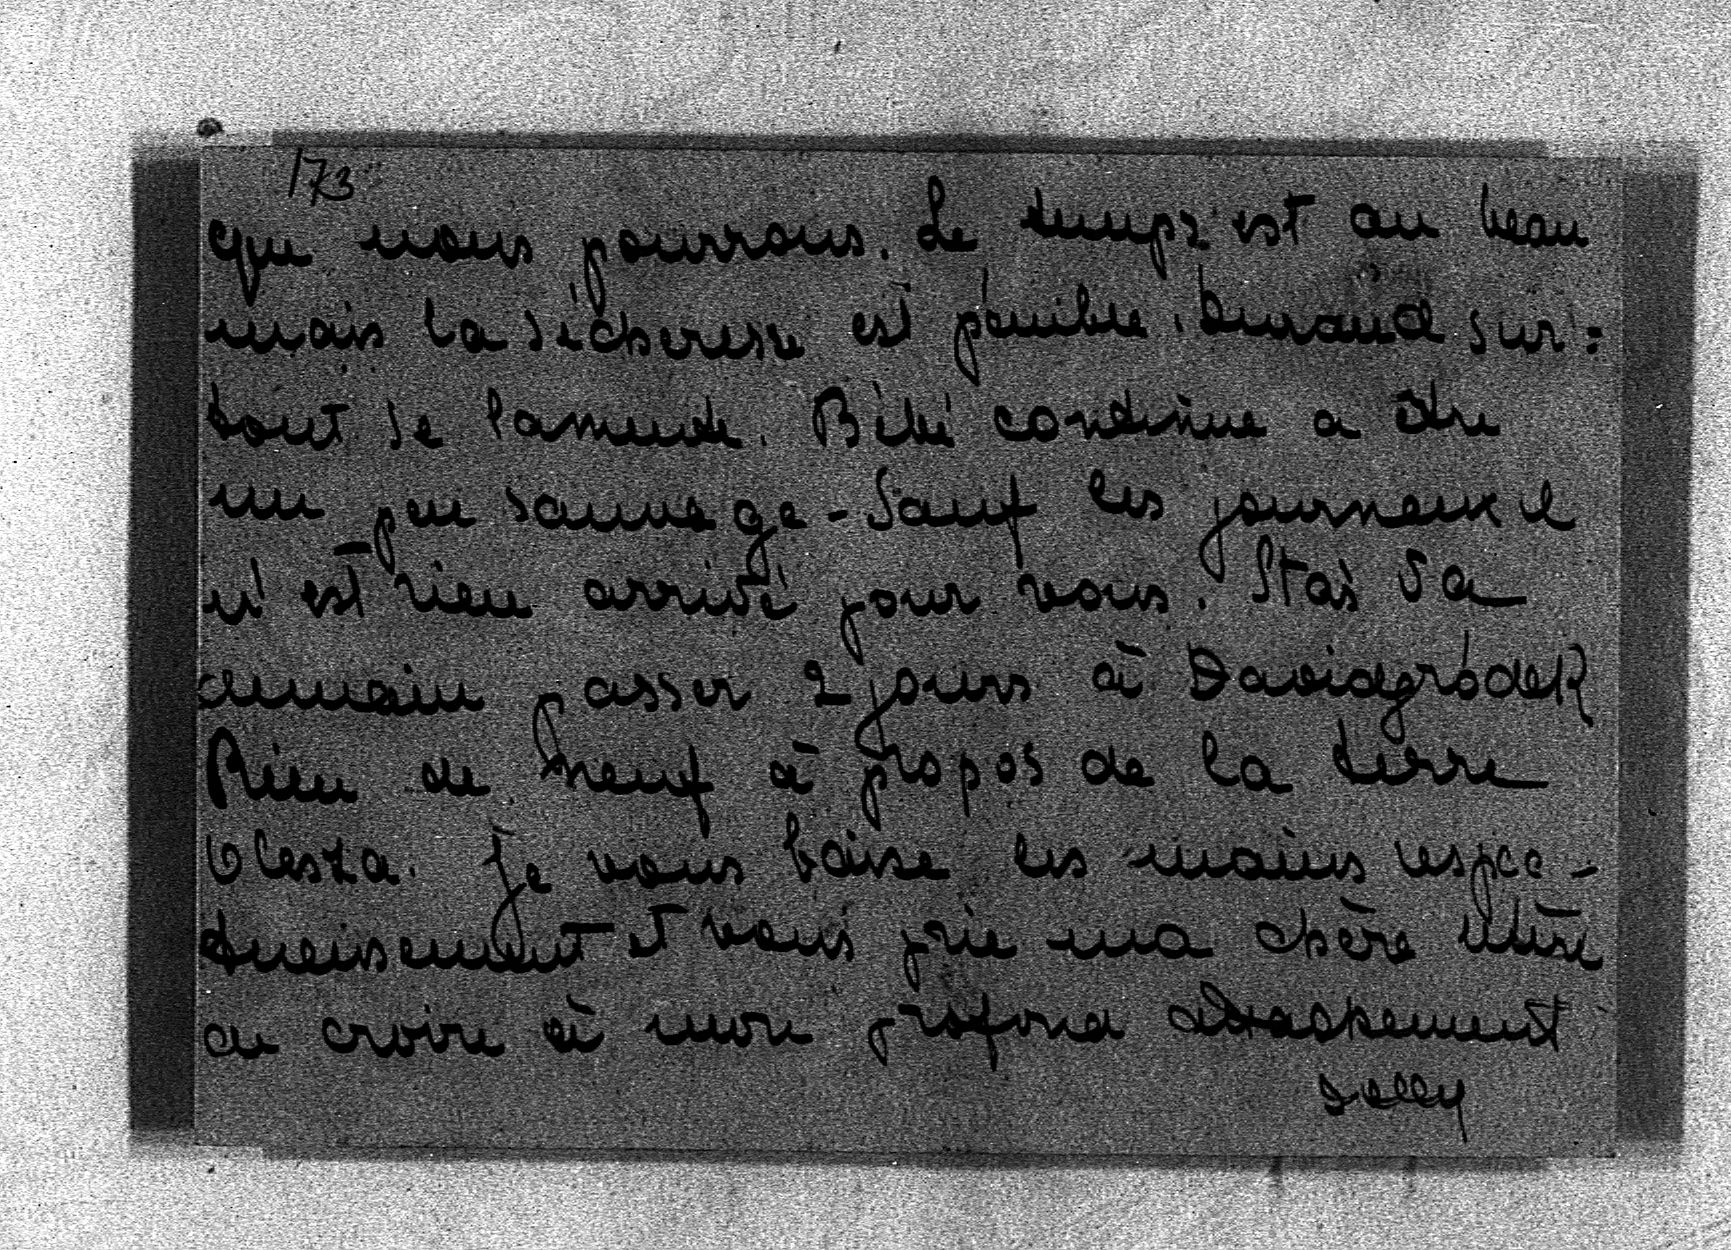 173
que nous pourrons. Le temps est au beau
mais la sécheresse est pénible. Durand sur=
tout se lamente. Bébé continue a être
un peu sauvage - Sauf les journeaux il
n'est rien arrivé pour vous. Staś va
demain passer 2 jours à Davidgródek
Rien de neuf à propos de la terre
Olesza. Je vous baise les mains respec-
tueusement et vous prie ma chère
de croire à mon profond attachement